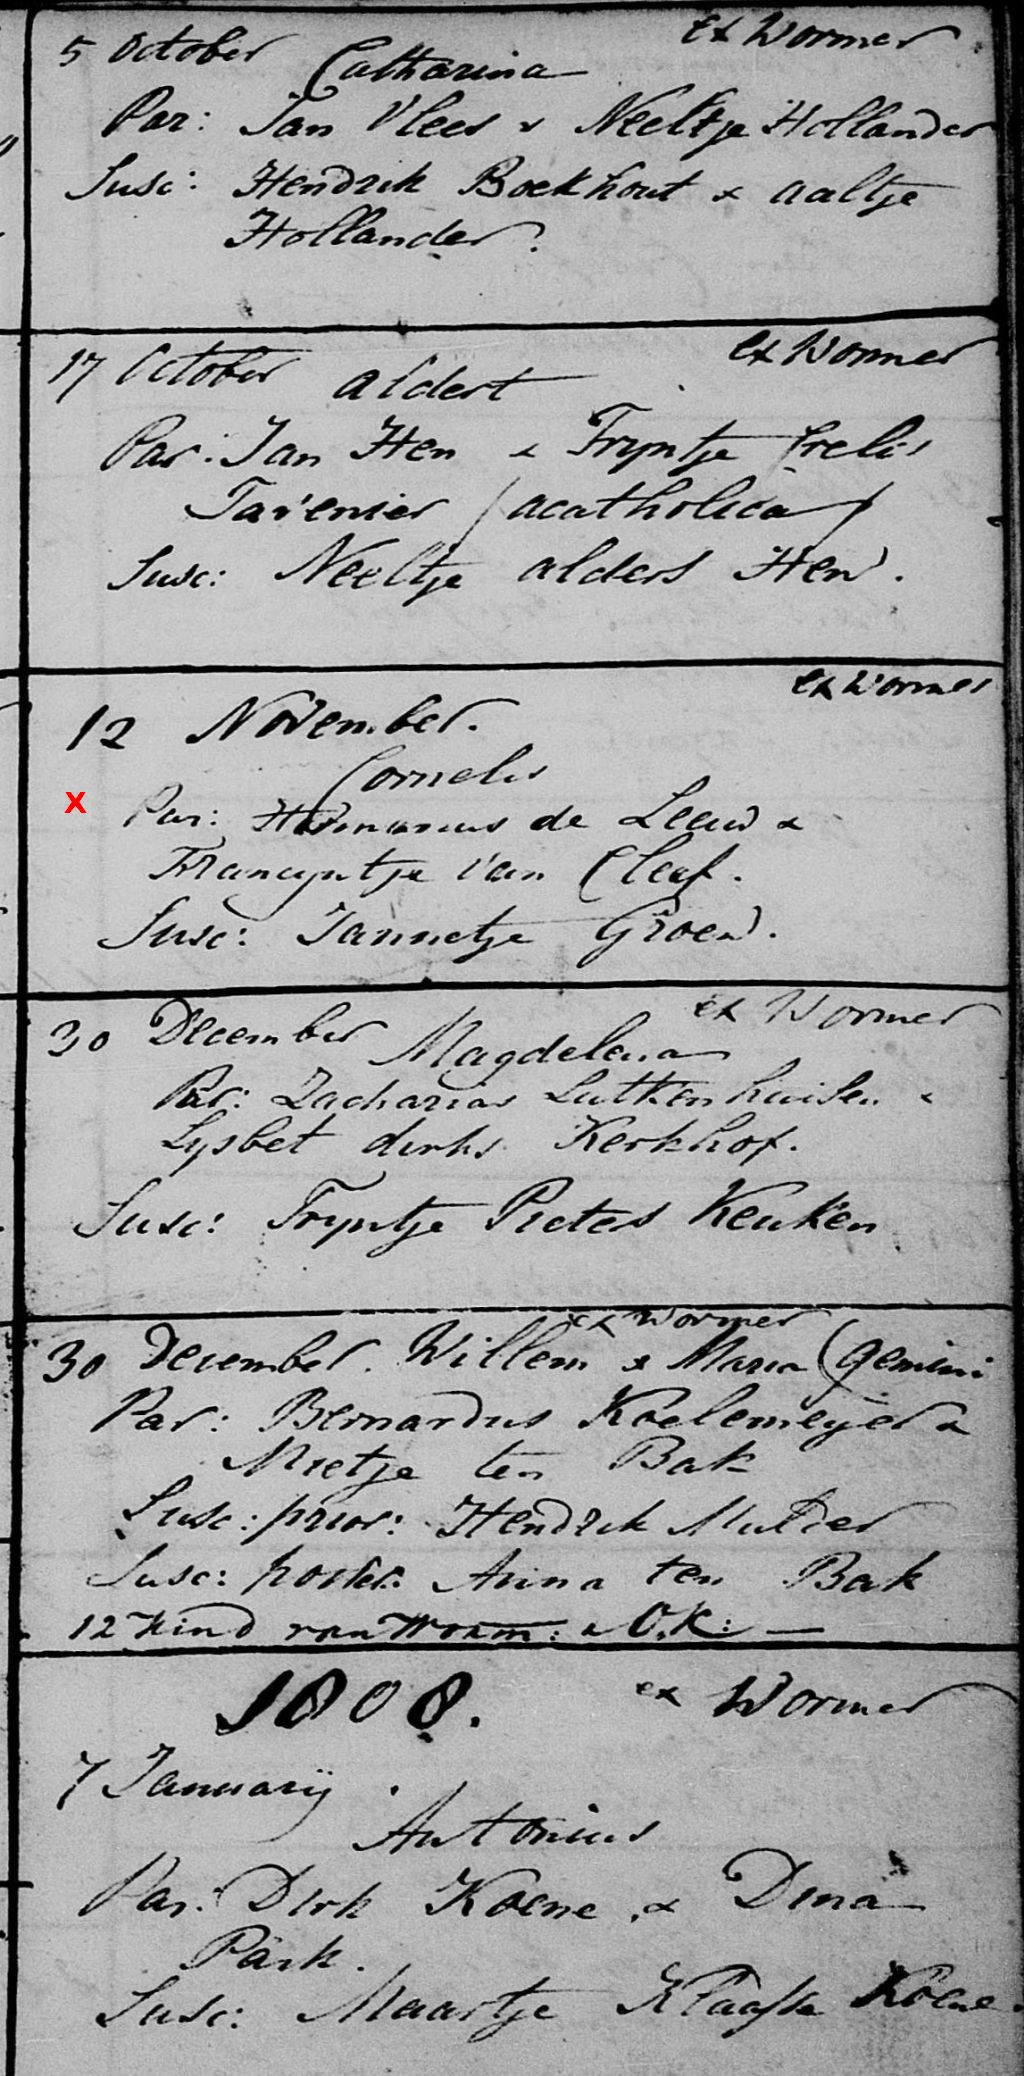 ex Wormer
5 October Catharina
Par: Jan Vlees & Neeltje Hollander
Susc: Hendrik Boekhout & aaltje
Hollander.
ex Wormer
17 October aldert
Par: Jan Hen & Tryntje Crelis
Tavenier (acatholica)
Susc: Neeltje alders Hen.
ex Wormer
12 November.
Cornelis
x Par: Hermanus de Leeuw &
Francyntje van Cleef.
Susc: Jannetje Groen.
ex Wormer
30 December Magdelena
Par: Zacharias Lutkenhuisen &
Lysbet dirks Kerkhof.
Susc: Tryntje Pieters Keuken
ex Wormer
30 December. Willem & Maria (gemini
Par: Bernardus Koelemeyer &
Mietje ten Bak
Susc: prior: Hendrik Mulder
Susc: poster: Anna ten Bak
12 Kind van Worm: & O.K: —
1808. ex Wormer
7 Januarij.
Antonius
Par: Dirk Koene, & Dina
Park.
Susc: Maartje Klaasse Koene.